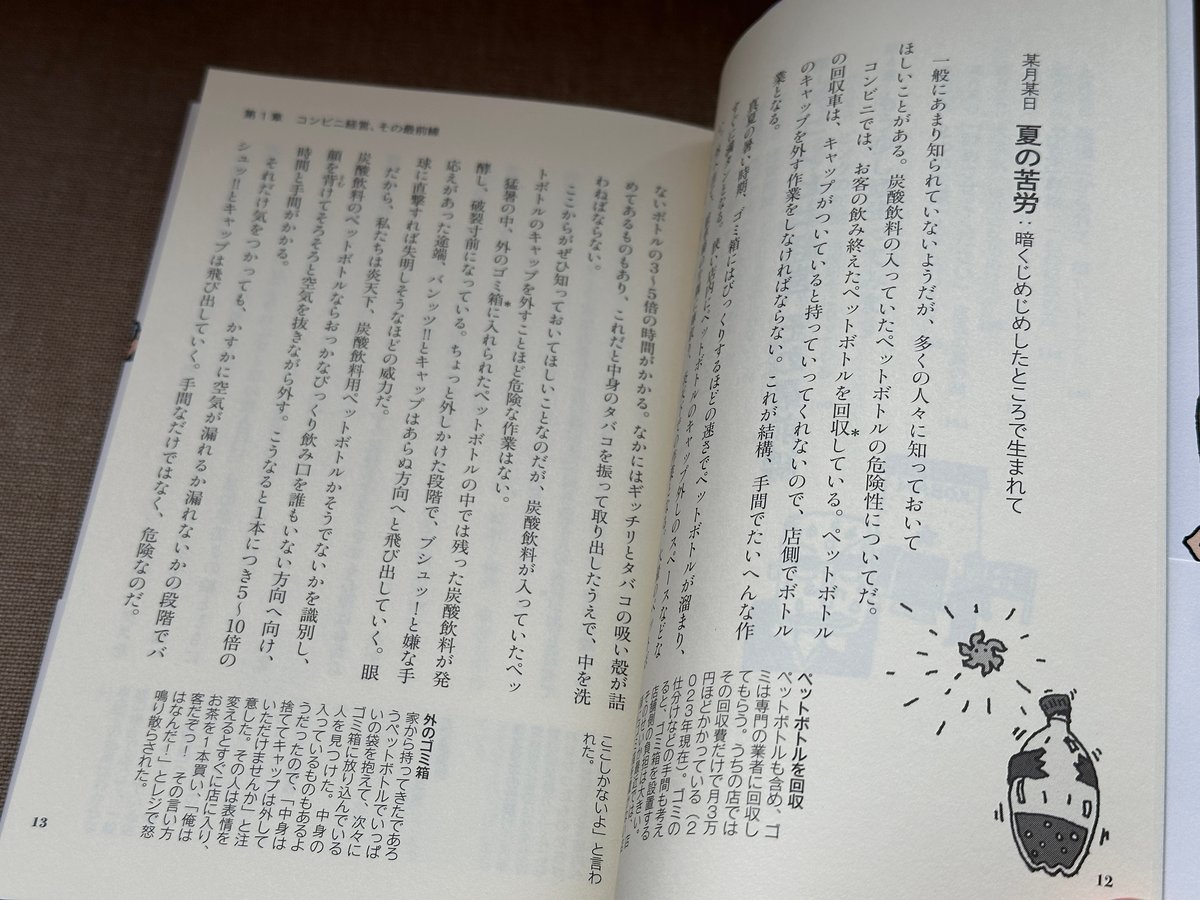 某月某日 夏の苦労:暗くじめじめしたところで生まれて
一般にあまり知られていないようだが、多くの人々に知っておいて
ほしいことがある。炭酸飲料の入っていたペットボトルの危険性についてだ。
コンビニでは、お客の飲み終えたペットボトルを回収*している。ペットボトル
の回収車は、キャップがついていると持っていってくれないので、店側でボトル
のキャップを外す作業をしなければならない。これが結構、手間でたいへんな作
業となる。
真夏の暑い時期、ゴミ箱にはびっくりするほどの速さでペットボトルが溜まり、
すぐに満タンとなる。狭い店内にペットボトルのキャップ外しのスペースなどな
ペットボトルを回収
ペットボトルも含め、ゴ
ミは専門の業者に回収し
てもらう。うちの店では
その回収費だけで月3万
円ほどかかっている(2
023年現在)。ゴミの
仕分けなどの手間も考え
ると、ゴミ箱を設置する
店舗側の負担は大きい。
12
第1章 コンビニ経営、その最前線
ないボトルの3~5倍の時間がかかる。なかにはギッチリとタバコの吸い殻が詰
めてあるものもあり、これだと中身のタバコを振って取り出したうえで、中を洗
わねばならない。
ここからがぜひ知っておいてほしいことなのだが、炭酸飲料が入っていたペッ
トボトルのキャップを外すことほど危険な作業はない。
猛暑の中、外のゴミ箱*に入れられたペットボトルの中では残った炭酸飲料が発
酵し、破裂寸前になっている。ちょっと外しかけた段階で、ブシュッ!と嫌な手
応えがあった途端、バシッッ!!とキャップはあらぬ方向へと飛び出していく。眼
球に直撃すれば失明しそうなほどの威力だ。
だから、私たちは炎天下、炭酸飲料用ペットボトルかそうでないかを識別し、
炭酸飲料のペットボトルならおっかなびっくり飲み口を誰もいない方向へ向け、
顔を背けてそろそろと空気を抜きながら外す。こうなると1本につき5~10倍の
時間と手間がかかる。
それだけ気をつかっても、かすかに空気が漏れるか漏れないかの段階でバ
シュッ!!とキャップは飛び出していく。手間なだけではなく、危険なのだ。
ここしかないよ」と言わ
れた。
外のゴミ箱
家から持ってきたであろ
うペットボトルでいっぱ
いの袋を抱えて、次々に
ゴミ箱に放り込んでいる
人を見つけた。中身の
入っているものもあるよ
うだったので、「中身は
捨ててキャップは外して
いただけませんか」と注
意した。その人は表情を
変えるとすぐに店に入り、
お茶を1本買い、「俺は
客だぞっ! その言い方
はなんだ!」とレジで怒
鳴り散らされた。
13